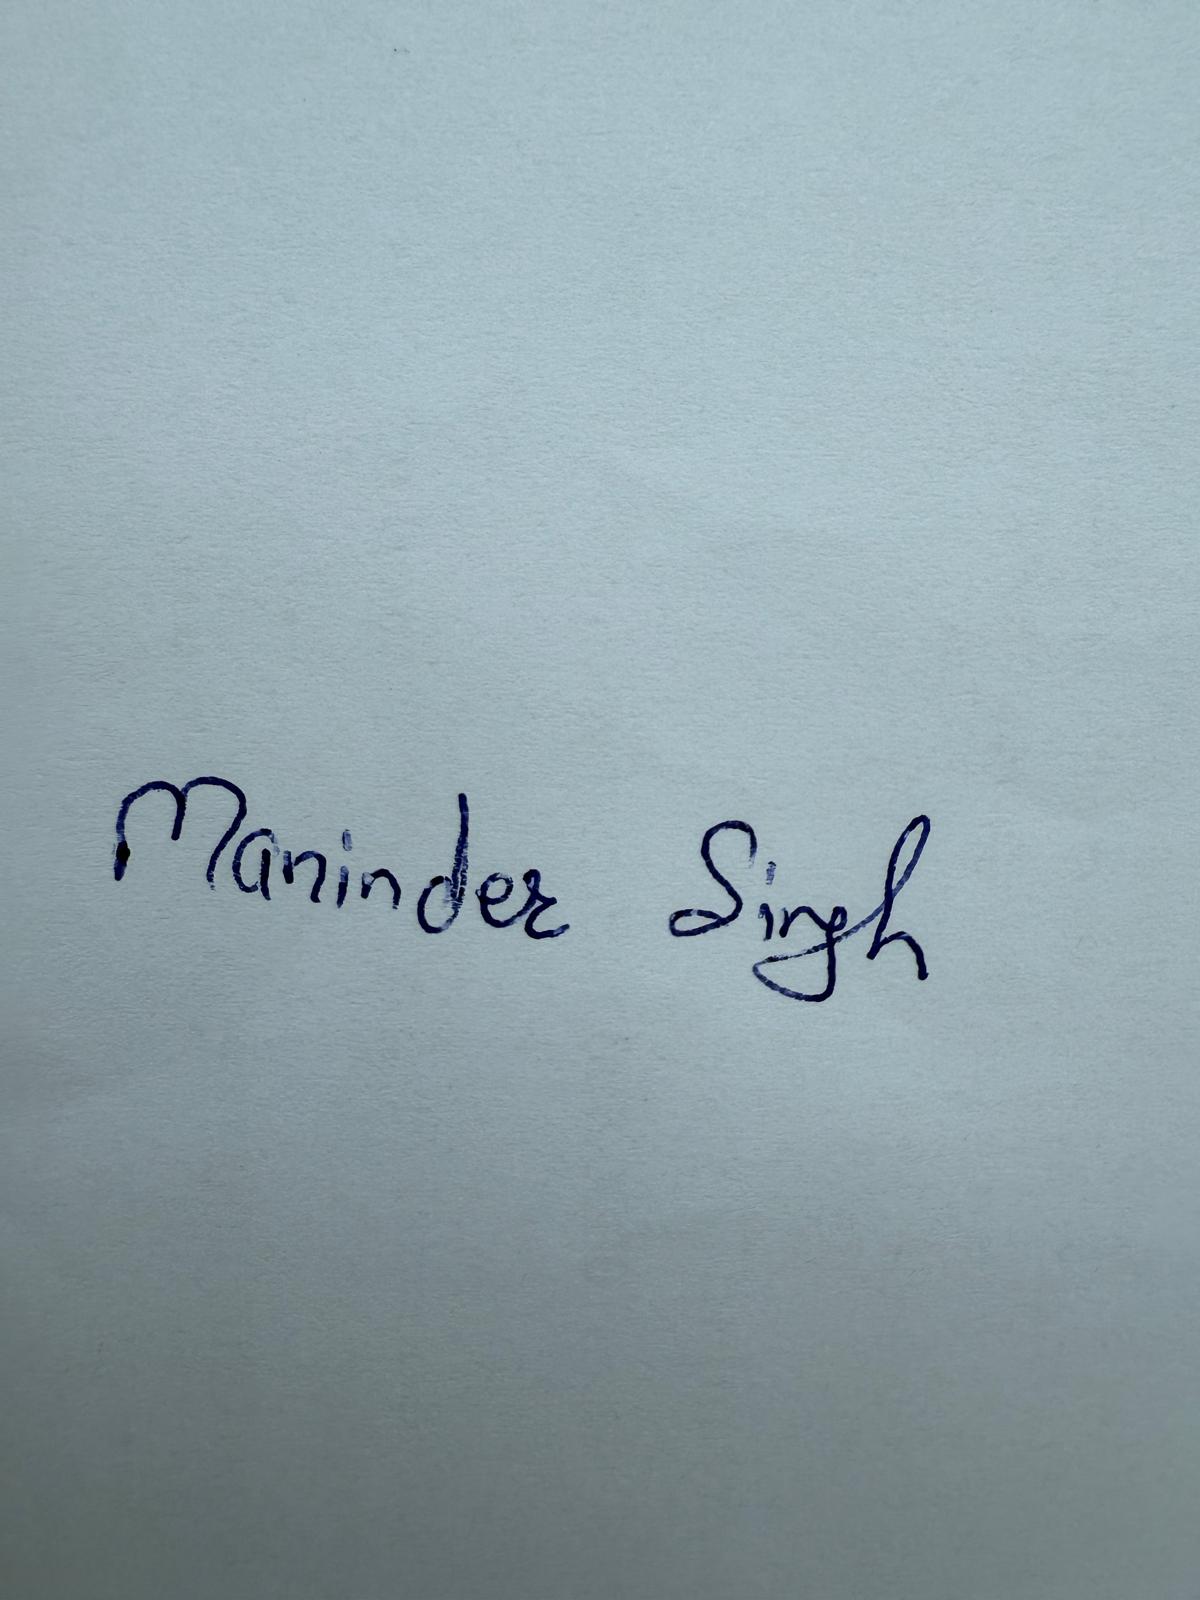 Maninder Singh